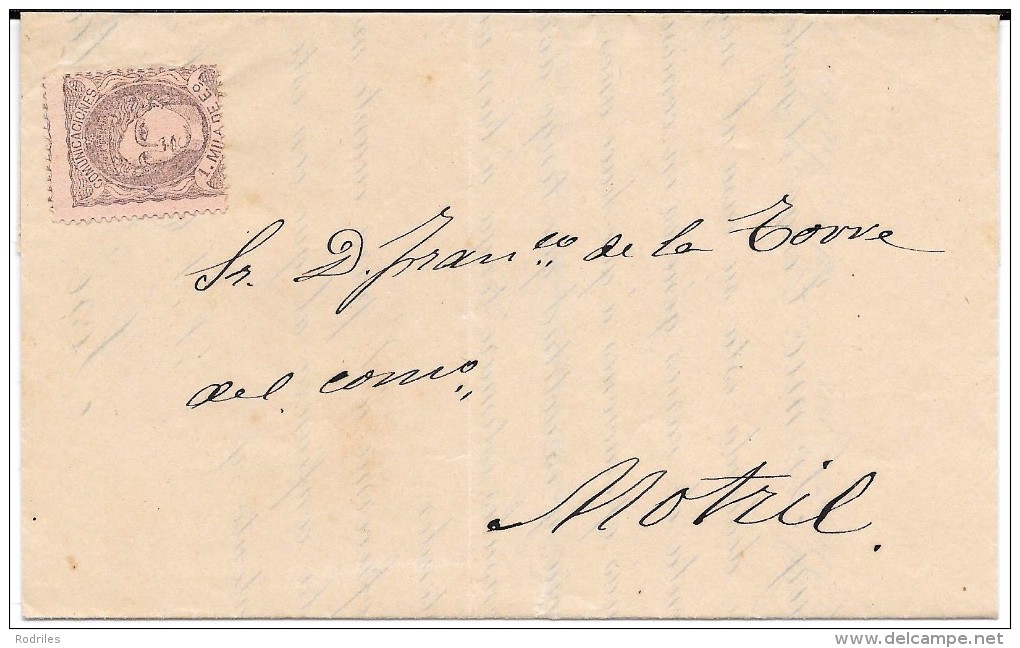 COMUNICACIONES
1. MILA DE Eº
Sr. D. Franco. de la Torre
del. como.
Motril.
Rodriles
www.delcampe.net